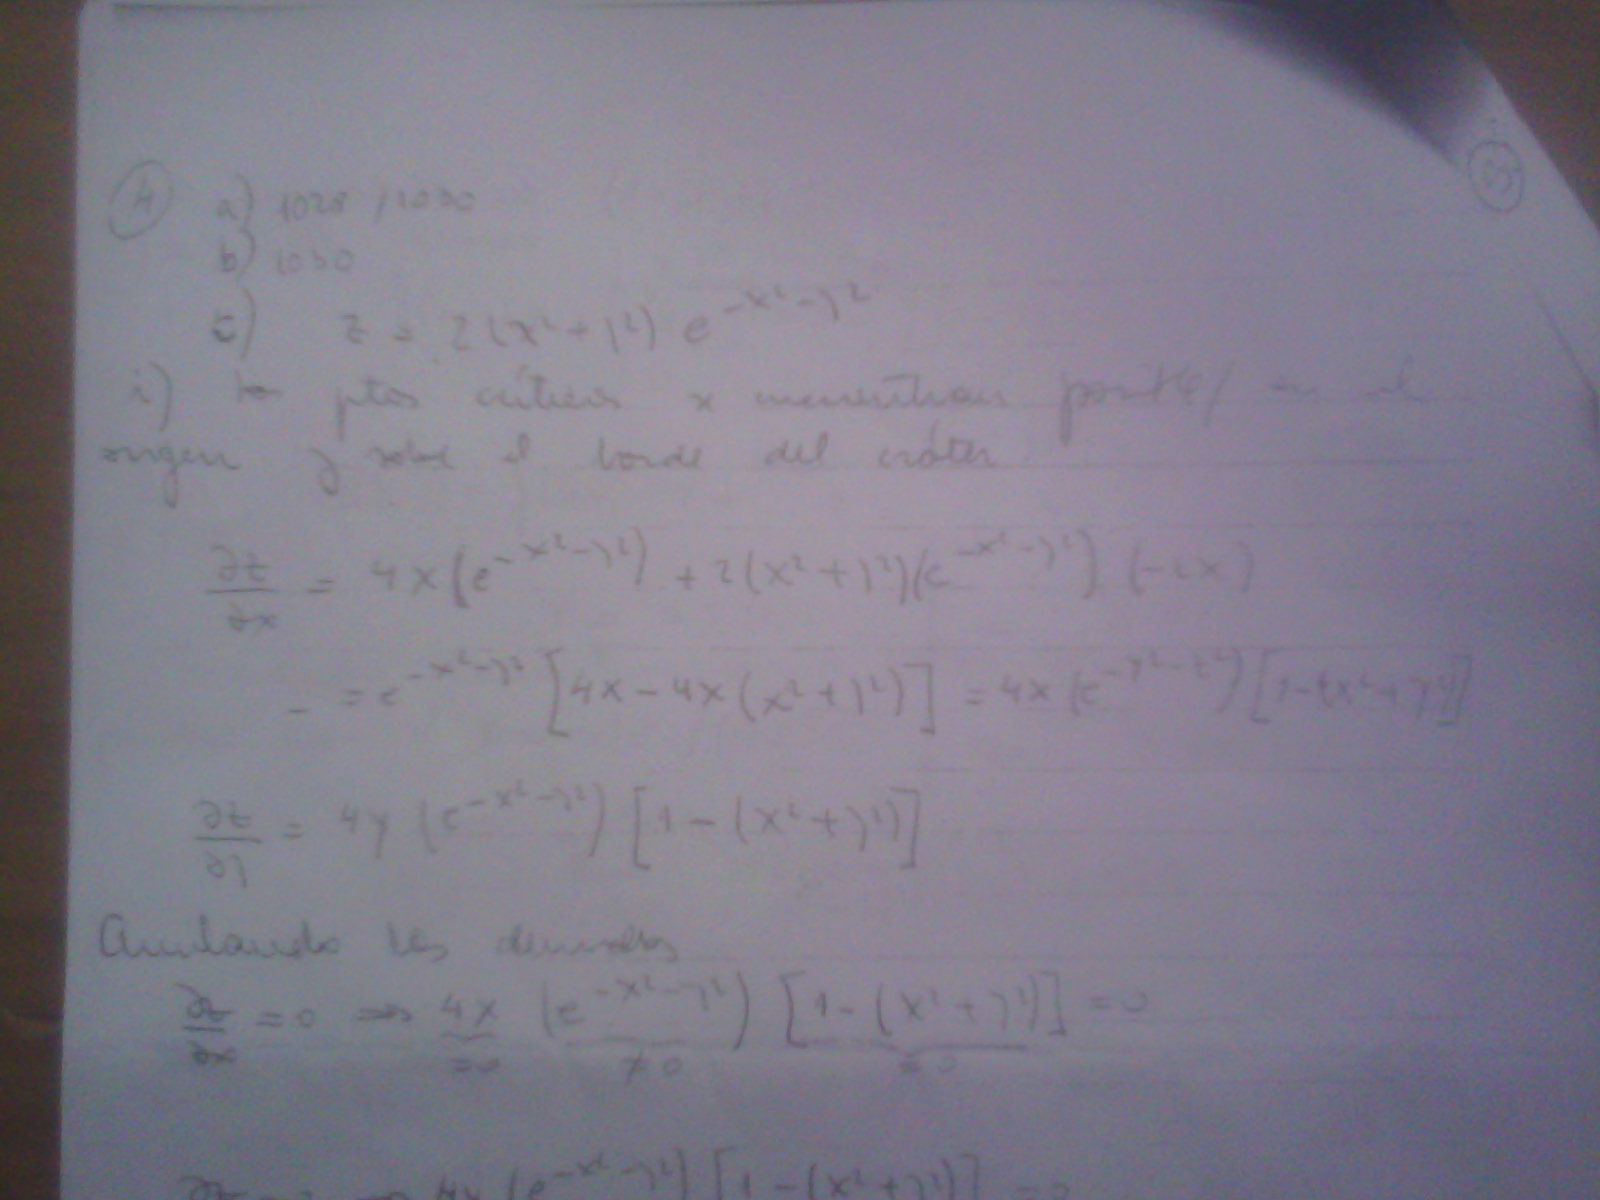 4 a) 1028 / 1030
5
b) 1030
c) z = 2(x²+y²) e^{-x²-y²}
i) ptos críticos se encuentran en el
origen y sobre el borde del cráter
∂z/∂x = 4x(e^{-x²-y²}) + 2(x²+y²)(e^{-x²-y²})(-2x)
= e^{-x²-y²} [4x-4x(x²+y²)] = 4x(e^{-y²-x²})[1-(x²+y²)]
∂z/∂y = 4y (e^{-x²-y²}) [1-(x²+y²)]
Anulando las derivadas
∂z/∂x = 0 ⇒ 4x (e^{-x²-y²}) [1-(x²+y²)] = 0
=0 ≠0 =0
4y (e^{-x²-y²}) [1-(x²+y²)] = 0